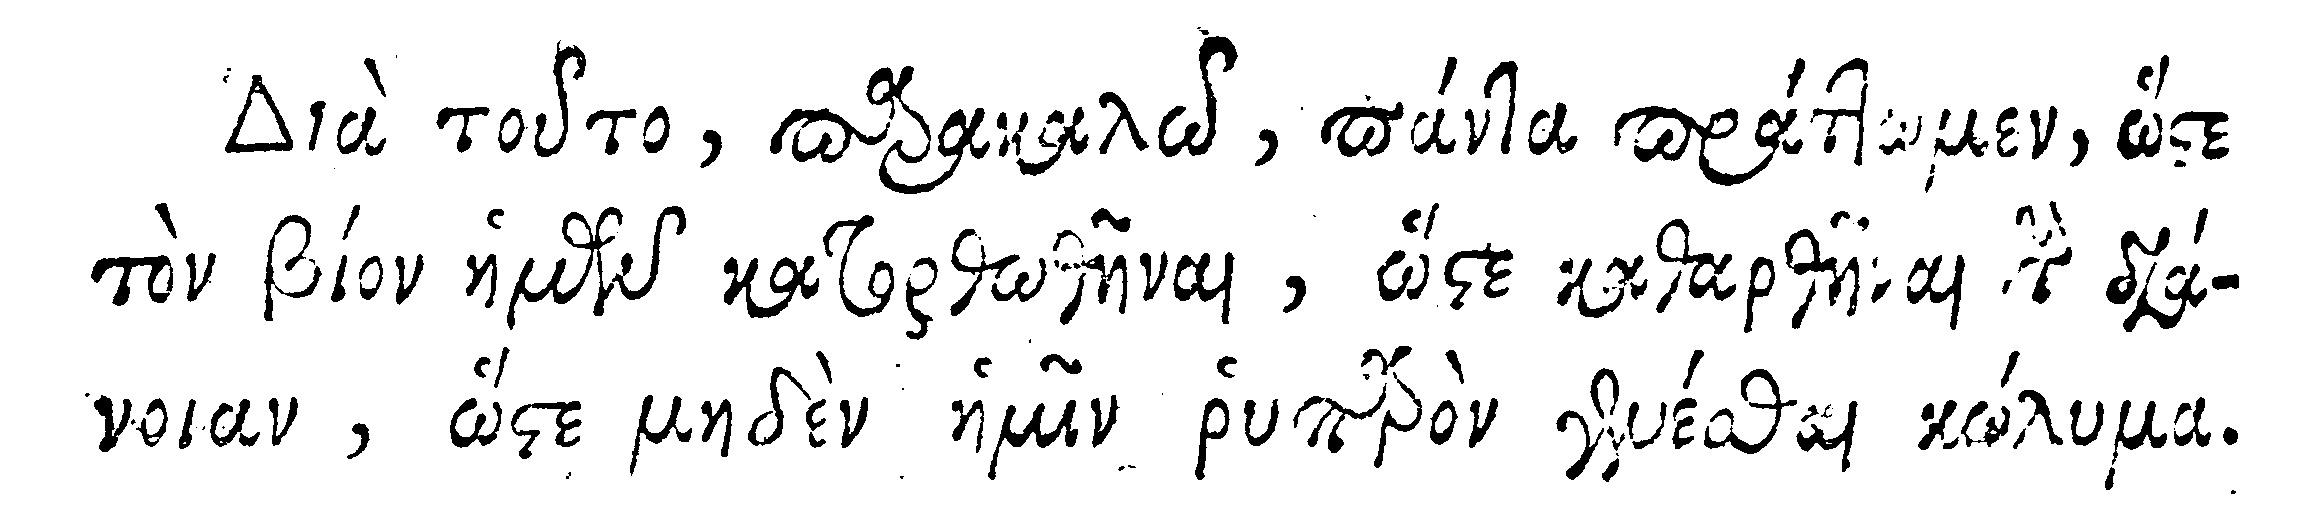 Διὰ τοῦτο, παρακαλῶ, πάντα πράττωμεν, ὥστε
τὸν βίον ἡμῶν κατορθωθῆναι, ὥστε καθαρθῆναι τὴν διά-
νοιαν, ὥστε μηδὲν ἡμῖν ῥυπαρὸν γενέσθαι κώλυμα.